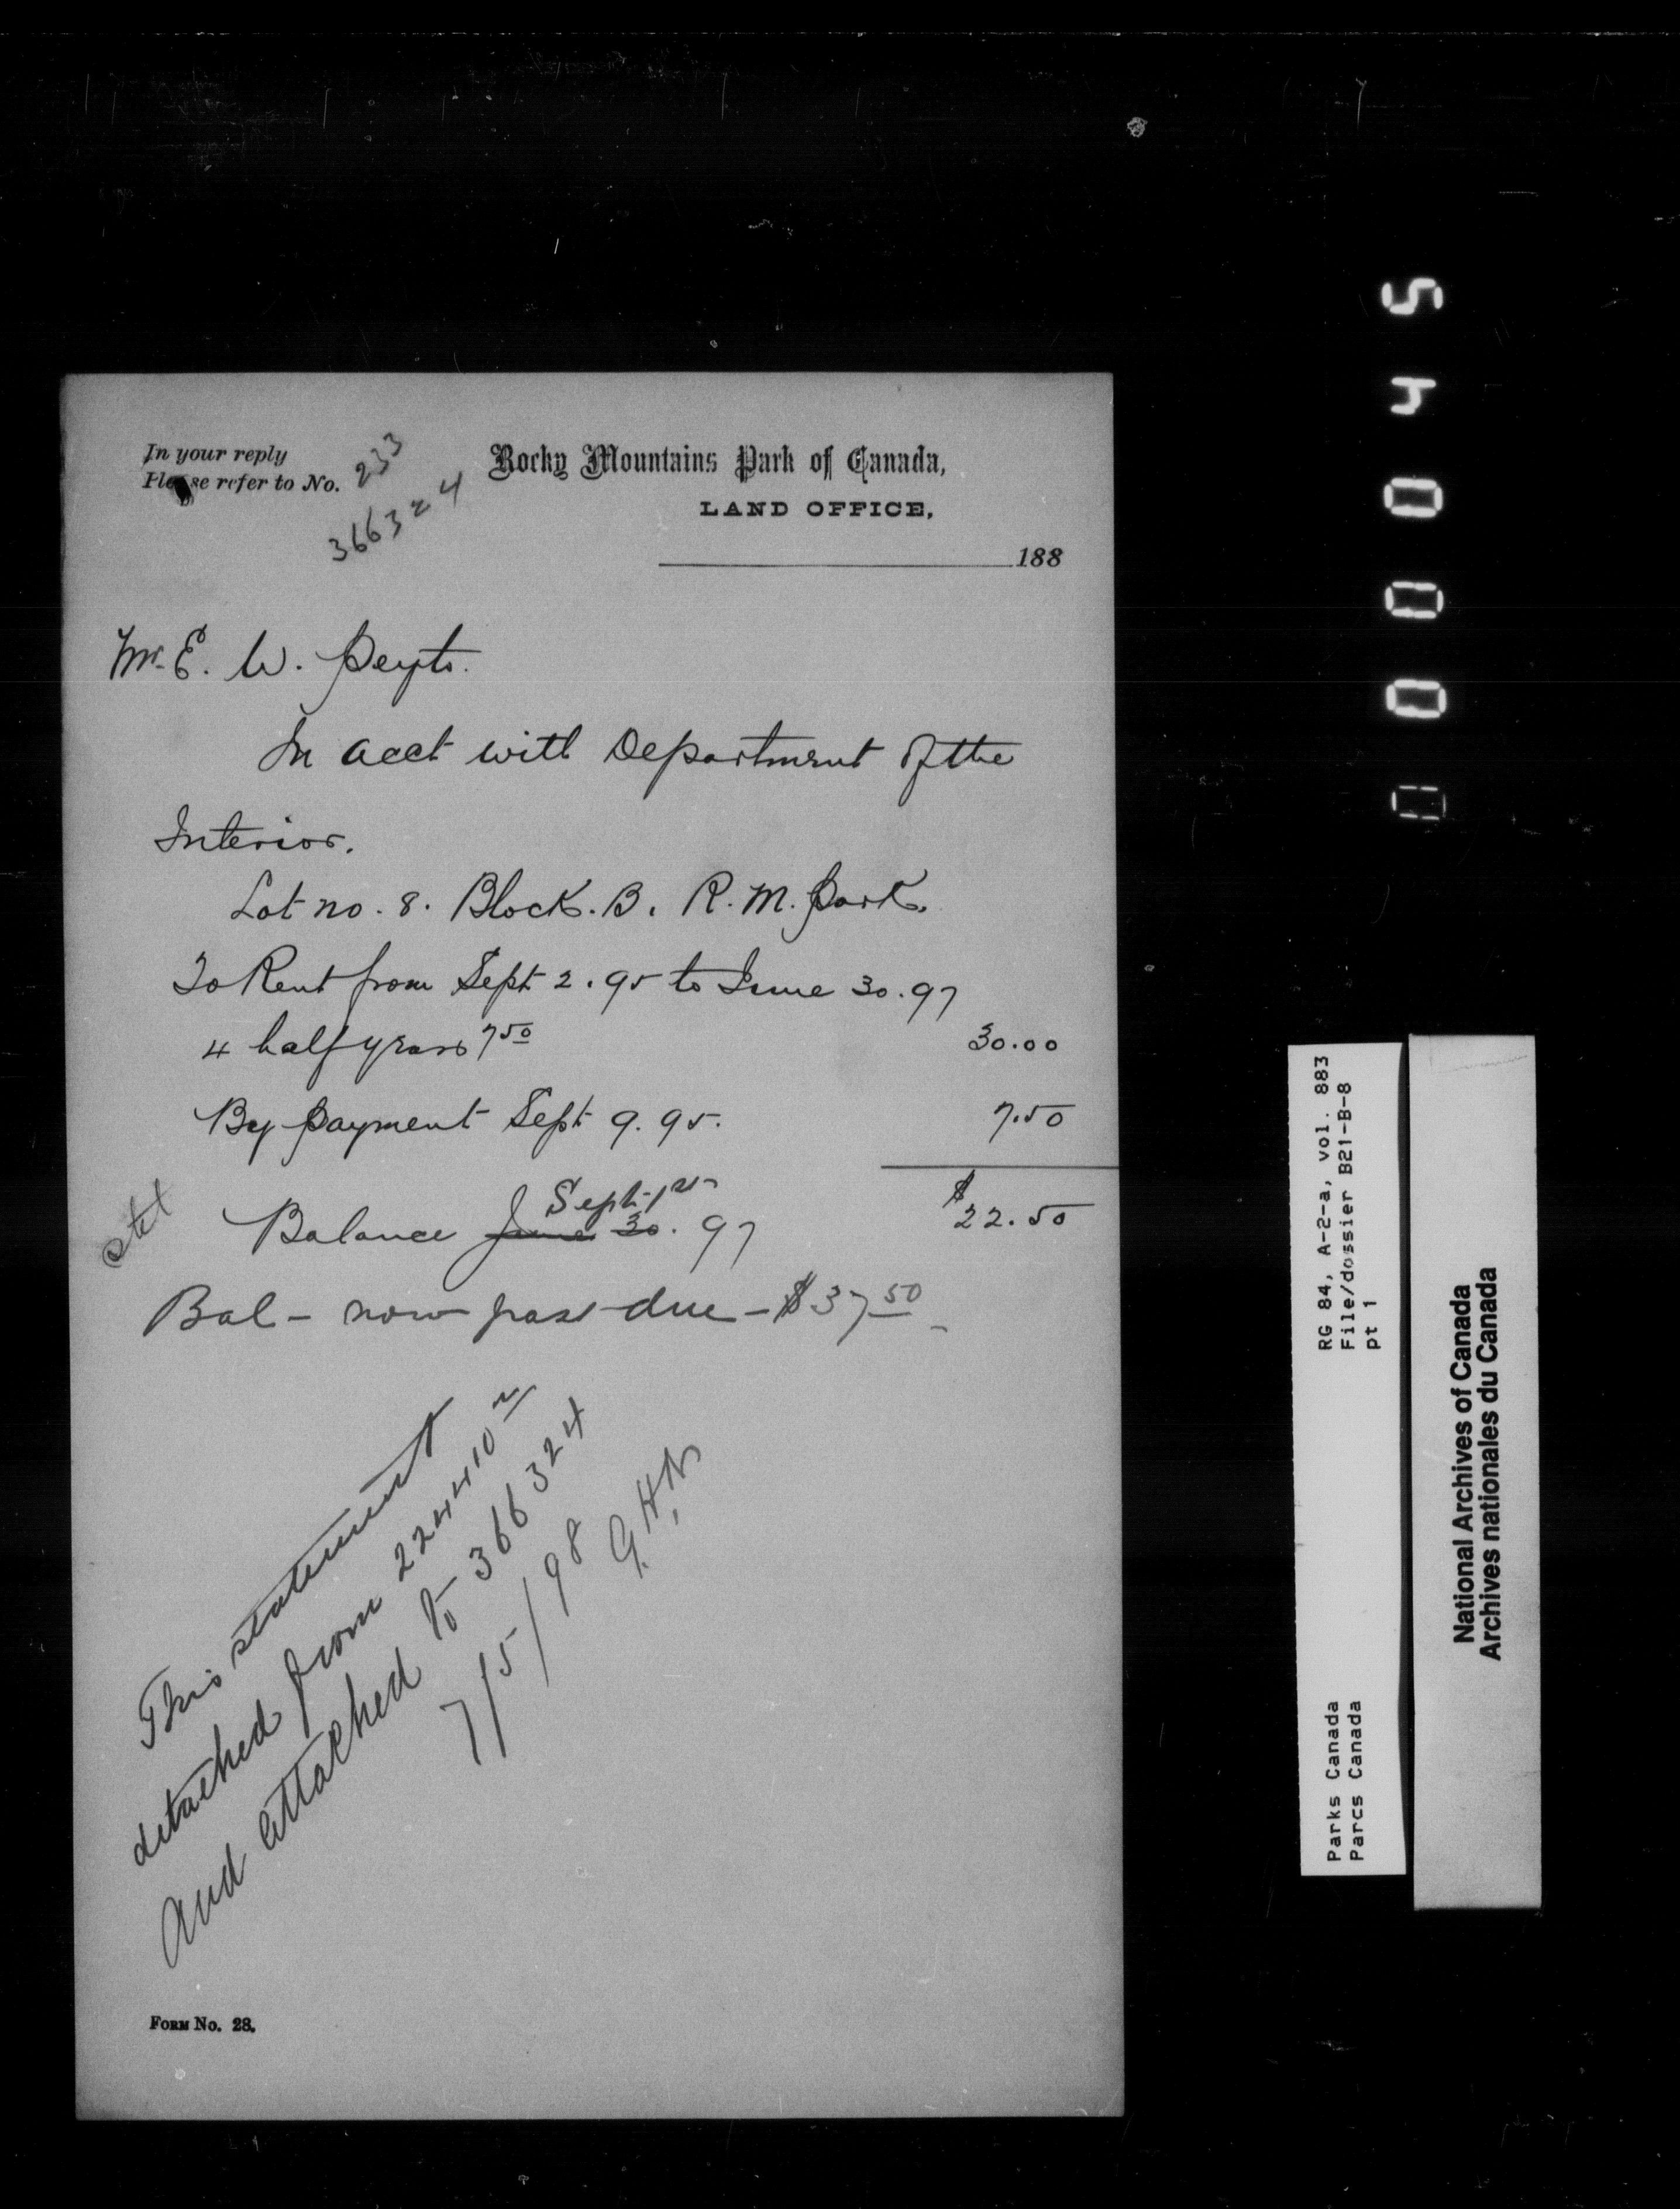 In your reply
Please refer to No. 233
366324
Rocky Mountains Park of Canada,
LAND OFFICE,
188
Mr. E. W. Peyto.
In acct with Department of the
Interior.
Lot no. 8. Block. B. R. M. Park.
To Rent from Sept 2. 95 to June 30. 97
4 half years 7 50 30.00
By payment Sept 9. 95. 7.50
stet
Sept. 1st
Balance June 30. 97 $22.50
Bal - now past due - $37 50 -
This statement
detached from 224410
and attached to 366324
7/5/98 G.H.N
FORM No. 28.
54000
RG 84, A-2-a, vol. 883
File/dossier B21-B-8
pt 1
Parks Canada
Parcs Canada
National Archives of Canada
Archives nationales du Canada